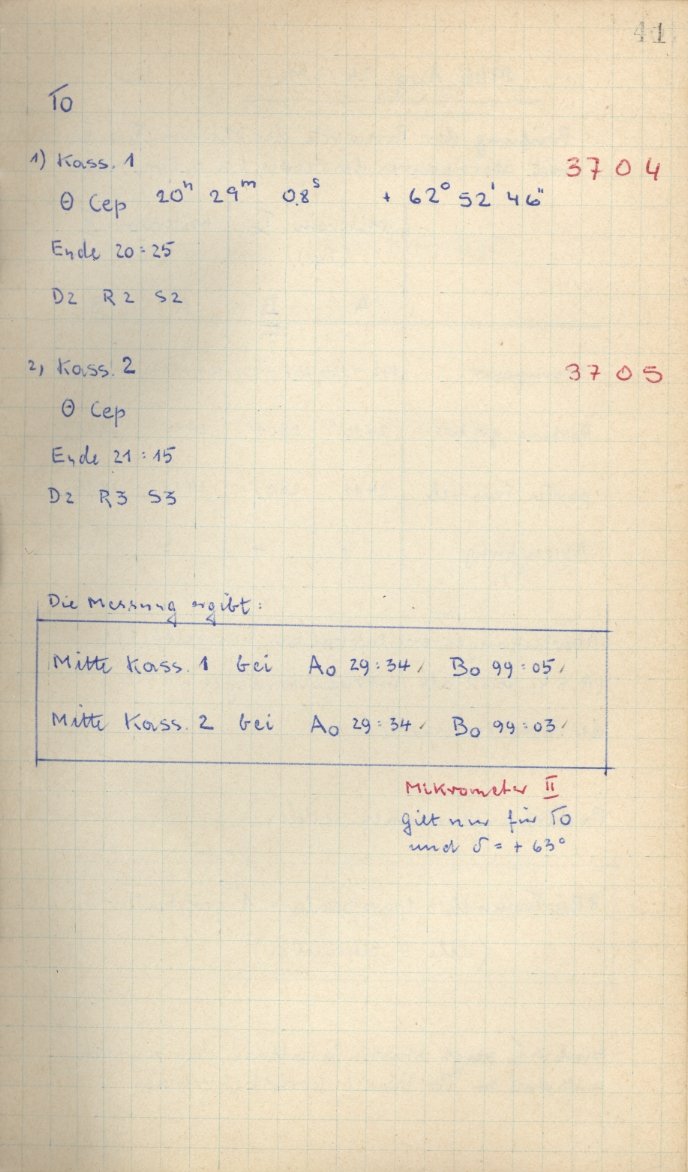 41
TO
1) Kass. 1 3704
Θ Cep 20h 29m 0.8s + 62° 52' 46"
Ende 20:25
D2 R2 S2
2) Kass. 2 3705
Θ Cep
Ende 21:15
D2 R3 S3
Die Messung ergibt:
Mitte Kass. 1 bei A0 29:34 B0 99:05
Mitte Kass. 2 bei A0 29:34 B0 99:03
Mikrometer II
gilt nur für TO
und δ = + 63°